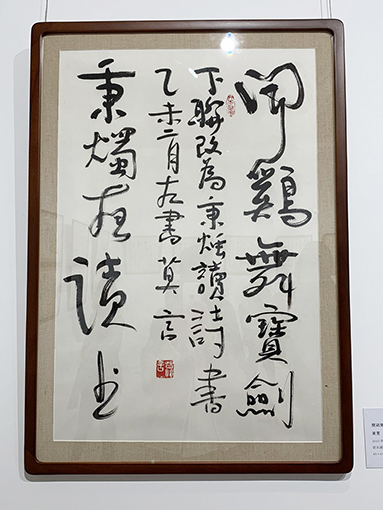 聞鷄舞寶劍
下聯改為秉燭讀詩書
乙未二月左書莫言
秉燭夜讀书